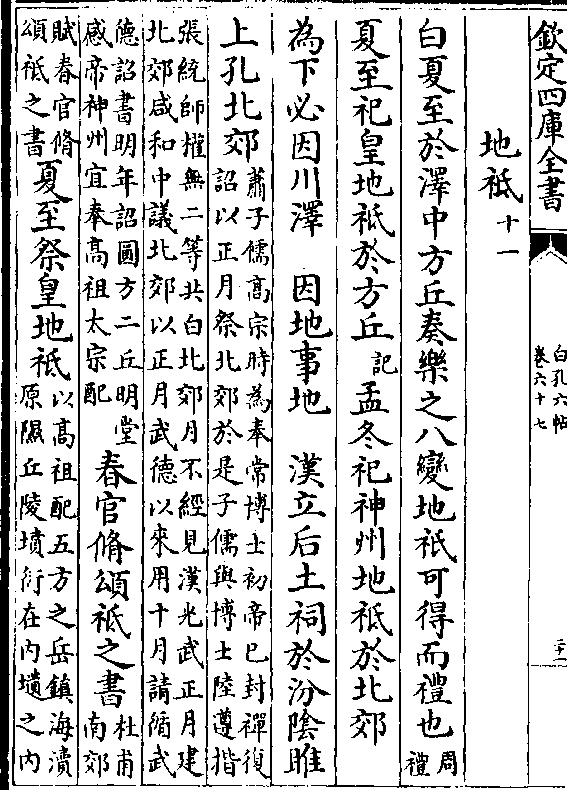 欽定四庫全書
白孔六帖
卷六十七
二十一
地祗十一
白夏至於澤中方丘奏樂之八變地祇可得而禮也周禮
夏至祀皇地祇於方丘記孟冬祀神州地祇於北郊
為下必因川澤　因地事地　漢立后土祠於汾陰脽
上孔北郊蕭子儒高宗時為奉常博士初帝已封禪復
詔以正月祭北郊於是子儒與博士陸遵揩
張統師權無二等共白北郊月不經見漢光武正月建
北郊咸和中議北郊以正月武德以來用十月請循武
德詔書明年詔圓方二丘明堂
感帝神州宜奉高祖太宗配春官脩頌祇之書杜甫
南郊
賦春官脩
頌祇之書夏至祭皇地祇以高祖配五方之岳鎮海瀆
原隰丘陵墳衍在內壝之內